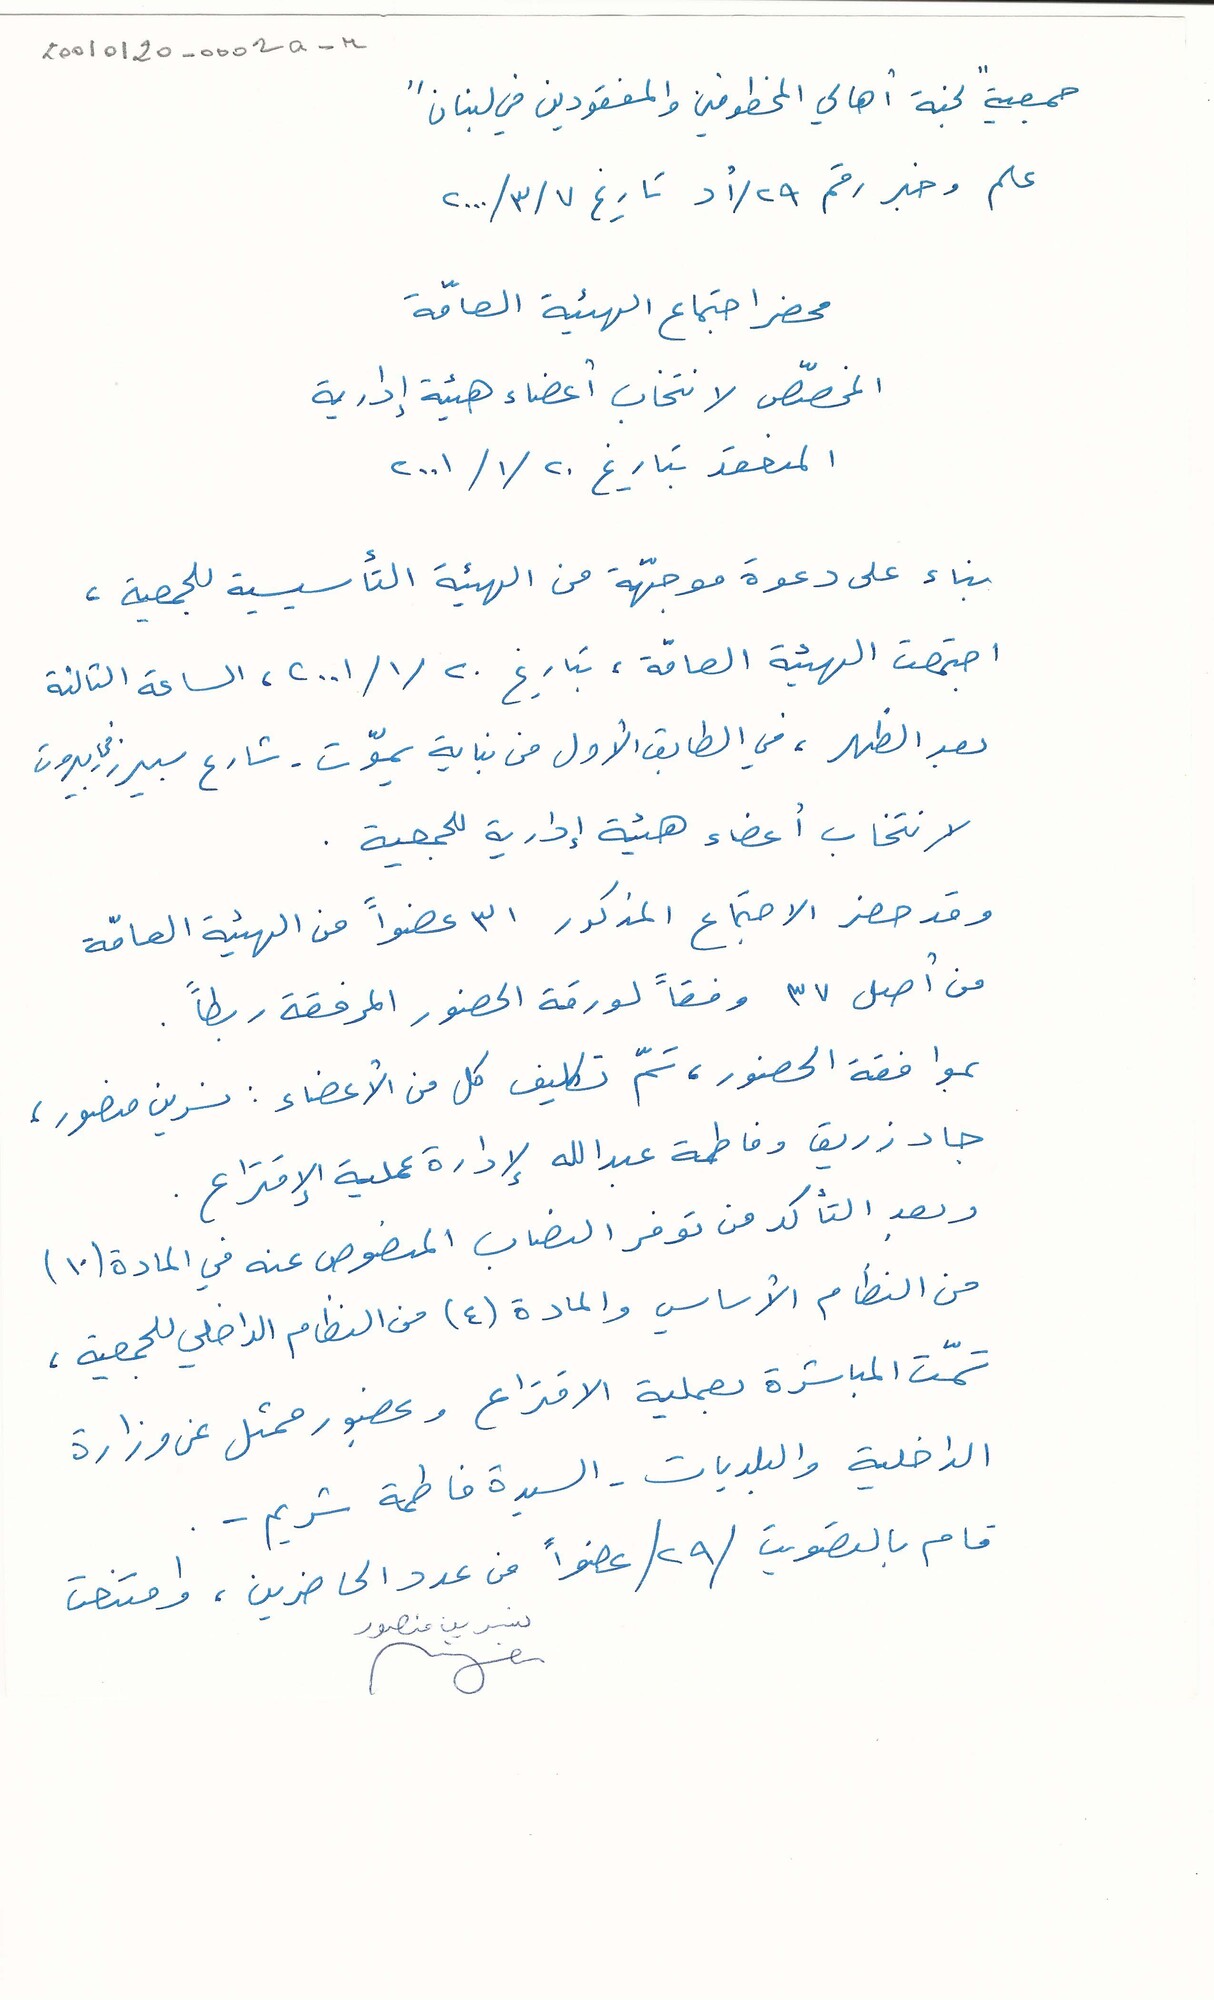 20010120-0002a-m
جمعية "لجنة أهالي المخطوفين والمفقودين في لبنان"
علم وخبر رقم ٢٩/أد تاريخ ٢٠٠٠/٣/٧
محضر اجتماع الهيئة العامّة
المخصّص لانتخاب أعضاء هيئة إدارية
المنعقد بتاريخ ٢٠٠١/١/٢٠
بناء على دعوة موجّهة من الهيئة التأسيسية للجمعية ،
اجتمعت الهيئة العامّة ، بتاريخ ٢٠٠١/١/٢٠ ، الساعة الثالثة
بعد الظهر ، في الطابق الأول من بناية يمّوت - شارع سبيرز في بيروت
لانتخاب أعضاء هيئة إدارية للجمعية .
وقد حضر الاجتماع المذكور ٣١ عضواً من الهيئة العامّة
من أصل ٣٧ وفقاً لورقة الحضور المرفقة ربطاً .
بموافقة الحضور ، تمّ تكليف كل من الأعضاء : نسرين منصور ،
جاد زريق وفاطمة عبدالله لإدارة عملية الإقتراع .
وبعد التأكد من توفر النصاب المنصوص عنه في المادة (١٠)
من النظام الأساسي والمادة (٤) من النظام الداخلي للجمعية ،
تمّت المباشرة بعملية الاقتراع وبحضور ممثل عن وزارة
الداخلية والبلديات - السيدة فاطمة شريم - .
قام بالتصويت /٢٩/ عضواً من عدد الحاضرين ، وامتنعت
نسرين منصور